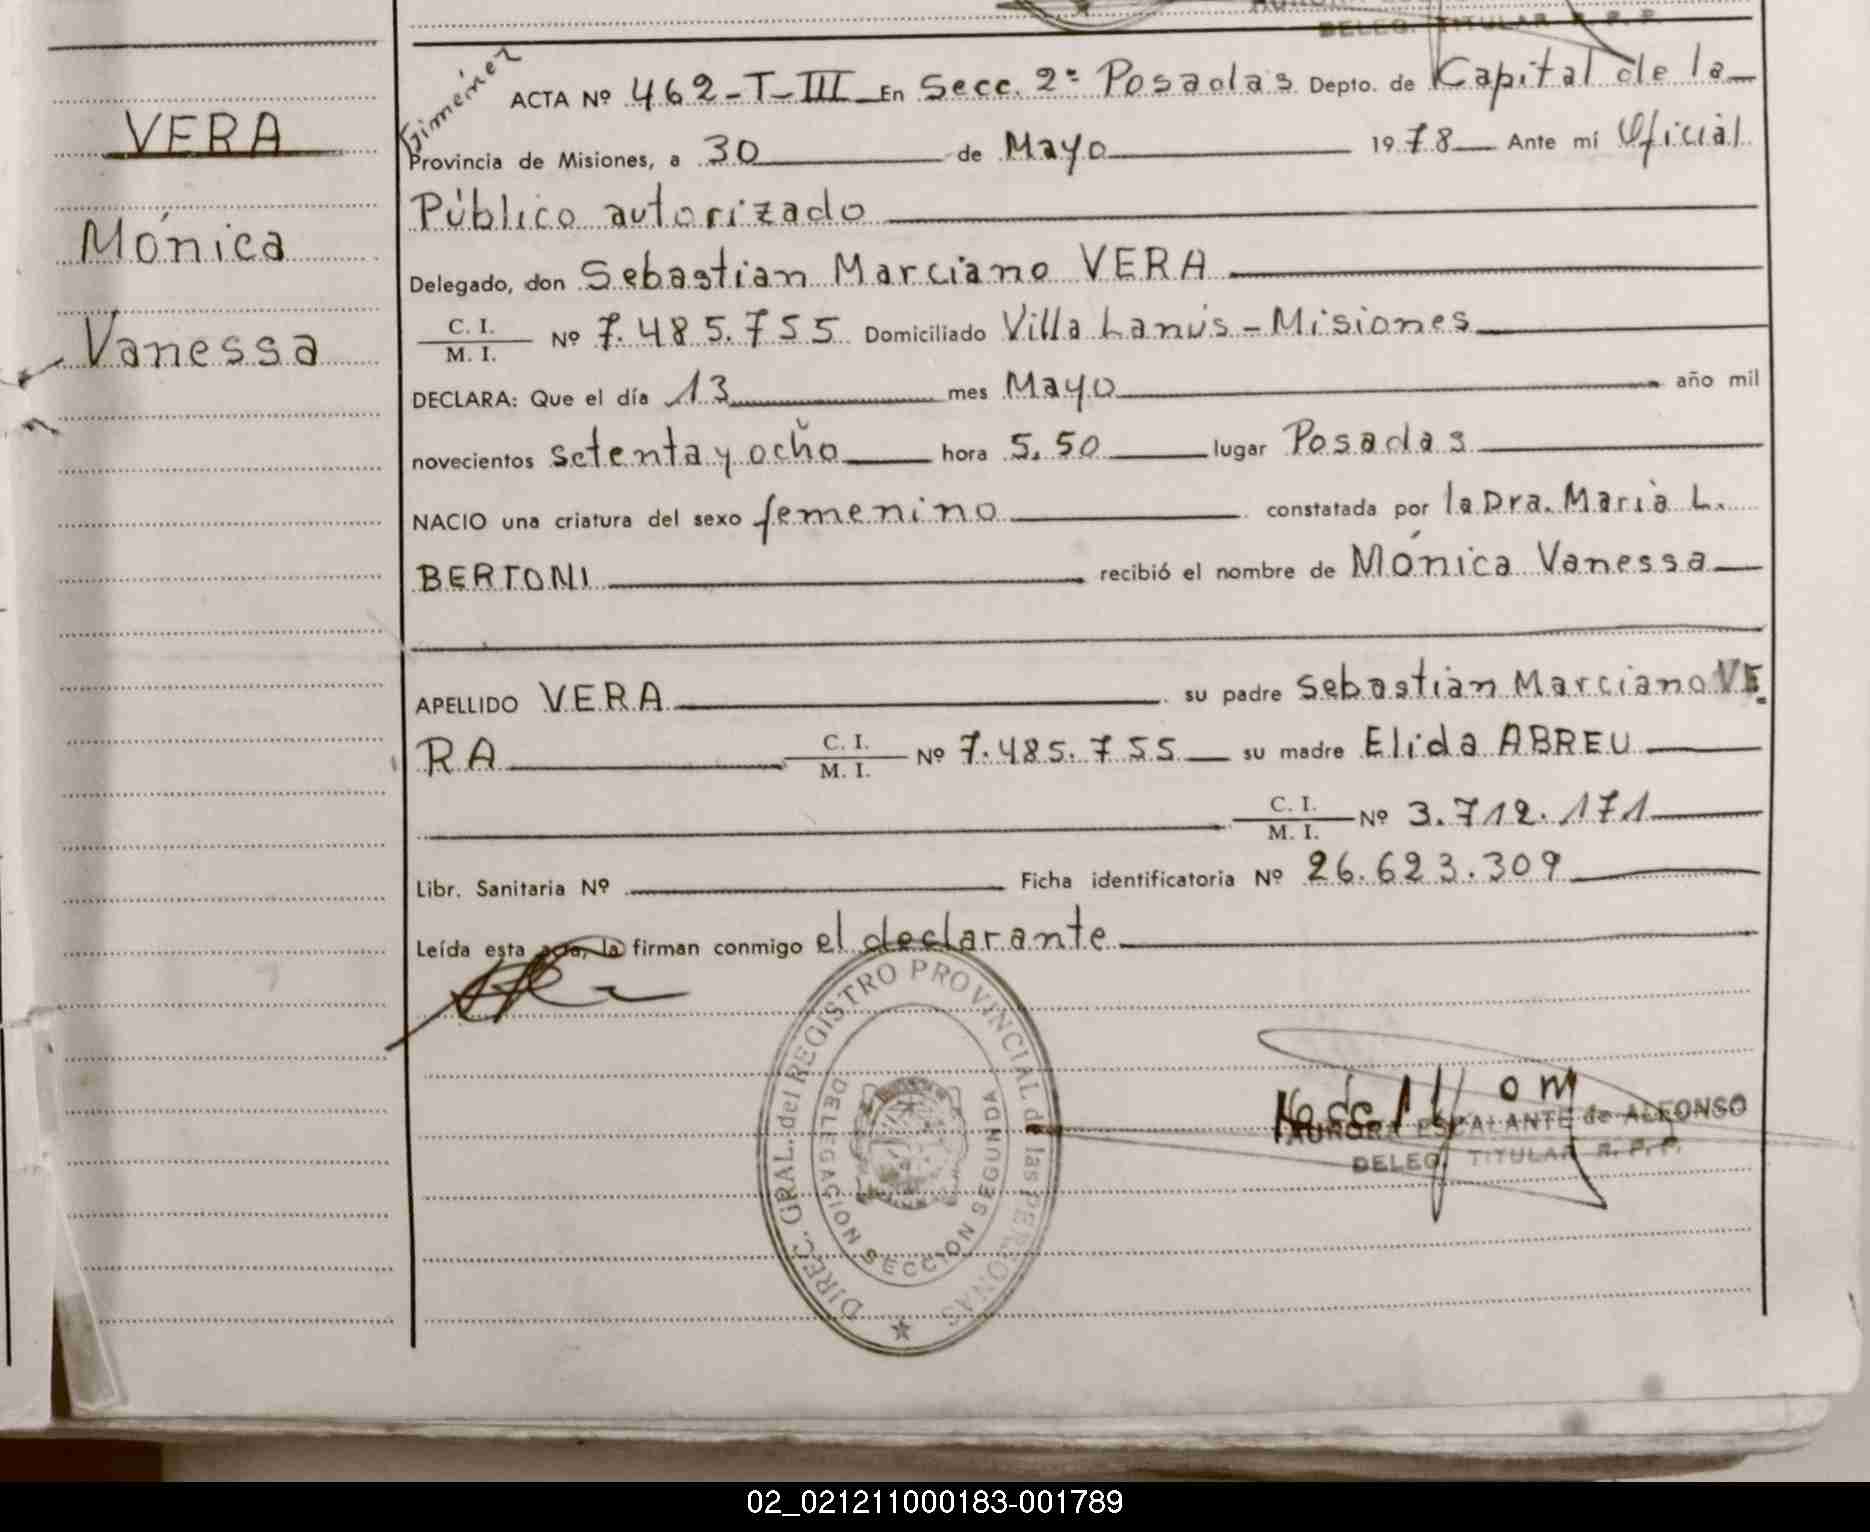 DELEG. TITULAR R. P. P.
Gimenez
ACTA Nº 462-T-III En Secc. 2ª Posadas Depto. de Capital de la
VERA
Provincia de Misiones, a 30 de Mayo 1978 Ante mí Oficial
Público autorizado
Mónica
Delegado, don Sebastian Marciano VERA
Vanessa
C. I.
M. I. Nº 7.485.755 Domiciliado Villa Lanús - Misiones
DECLARA: Que el día 13 mes Mayo año mil
novecientos setenta y ocho hora 5.50 lugar Posadas
NACIO una criatura del sexo femenino constatada por la Dra. María L.
BERTONI recibió el nombre de Mónica Vanessa
APELLIDO VERA su padre Sebastian Marciano VE
RA C. I. M. I. Nº 7.485.755 su madre Elida ABREU
C. I. M. I. Nº 3.712.171
Libr. Sanitaria Nº Ficha identificatoria Nº 26.623.309
Leída esta acta, la firman conmigo el declarante
DIREC. GRAL. del REGISTRO PROVINCIAL de las PERSONAS
DELEGACION SECCION SEGUNDA
AURORA ESCALANTE de ALFONSO
DELEG. TITULAR R. P. P.
02_021211000183-001789